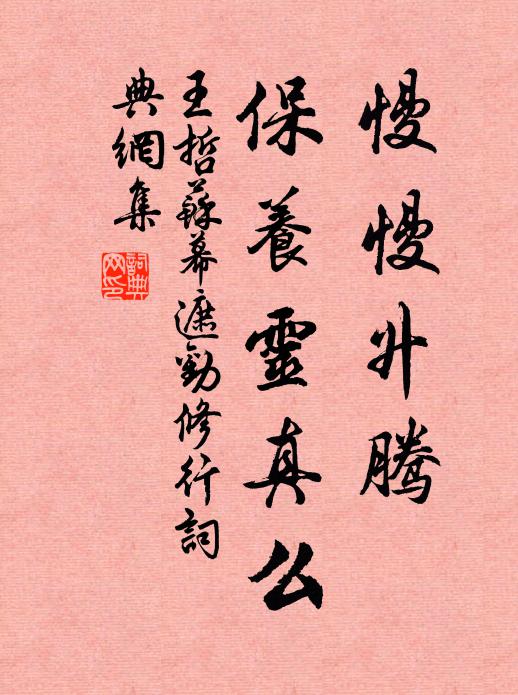 慢慢升腾
保養靈真么
王哲蘇幕遮勸修行詞
典網集
詞典网印